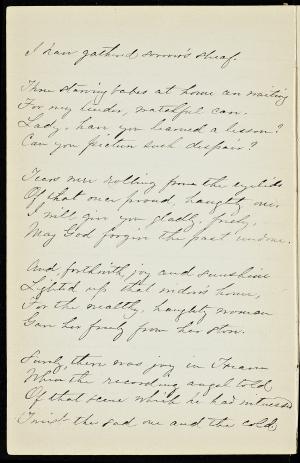 I have gathered sorrow's sheaf.
Three starving babes at home are waiting
For my tender, watchful care.
Lady, have you learned a lesson?
Can you picture such despair?
Tears were rolling from the eyelids
Of that once proud, haughty one.
I will give you gladly, freely,
May God forgive the past undone.
And, forthwith, joy and sunshine
Lighted up that widow's home,
For the wealthy, haughty woman
Gave her freely from her store.
Surely, there was joy in Heaven
When the recording angel told
Of that scene which he had witnessed
Twixt the sad one and the cold,